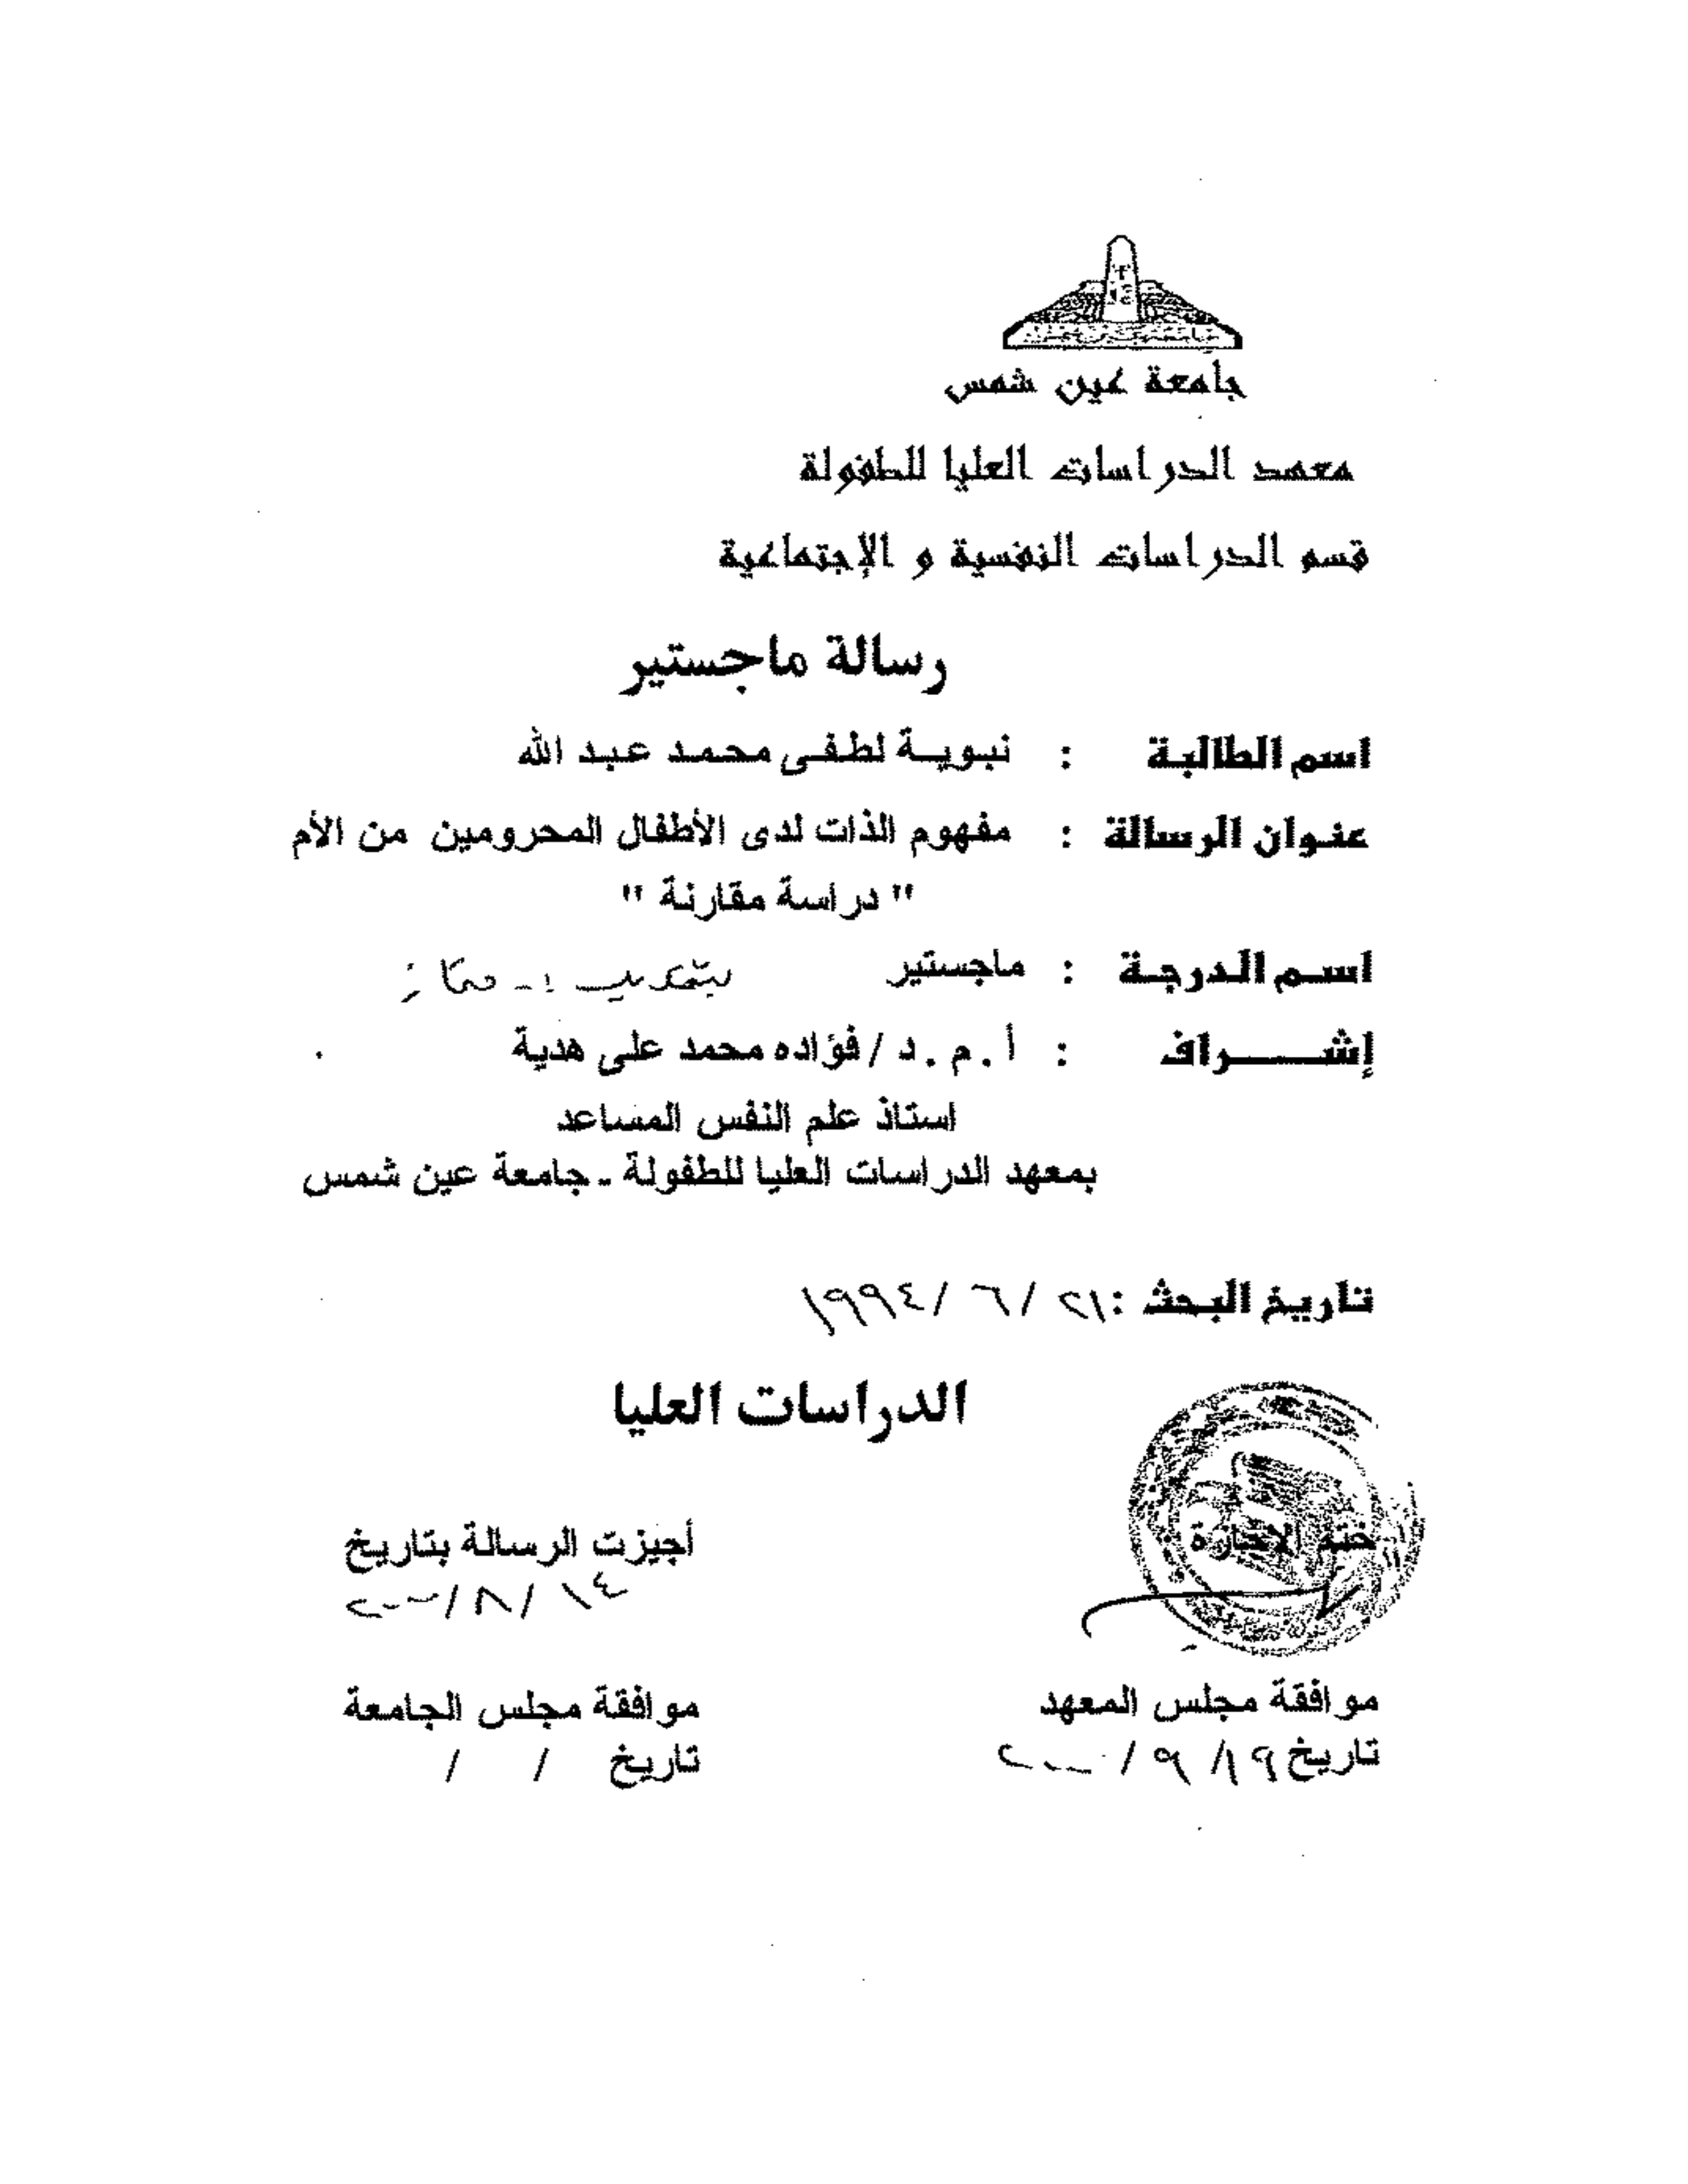 جامعة عين شمس
معهد الدراسات العليا للطفولة
قسم الدراسات النفسية و الإجتماعية
رسالة ماجستير
اسم الطالبة : نبويـة لطفى محمد عبد الله
عنوان الرسالة : مفهوم الذات لدى الأطفال المحرومين من الأم
" دراسة مقارنة "
اسـم الدرجـة : ماجستير بتقدير ممتاز
إشـــــراف : أ . م . د / فؤاده محمد على هدية
استاذ علم النفس المساعد
بمعهد الدراسات العليا للطفولة - جامعة عين شمس
تاريخ البحث : ٢١ / ٦ / ١٩٩٤
الدراسات العليا
ختم الإجازة
أجيزت الرسالة بتاريخ
١٤ / ٨ / ٢٠٠٠
موافقة مجلس المعهد
تاريخ / ٩ / ٢٠٠٠
موافقة مجلس الجامعة
تاريخ / /